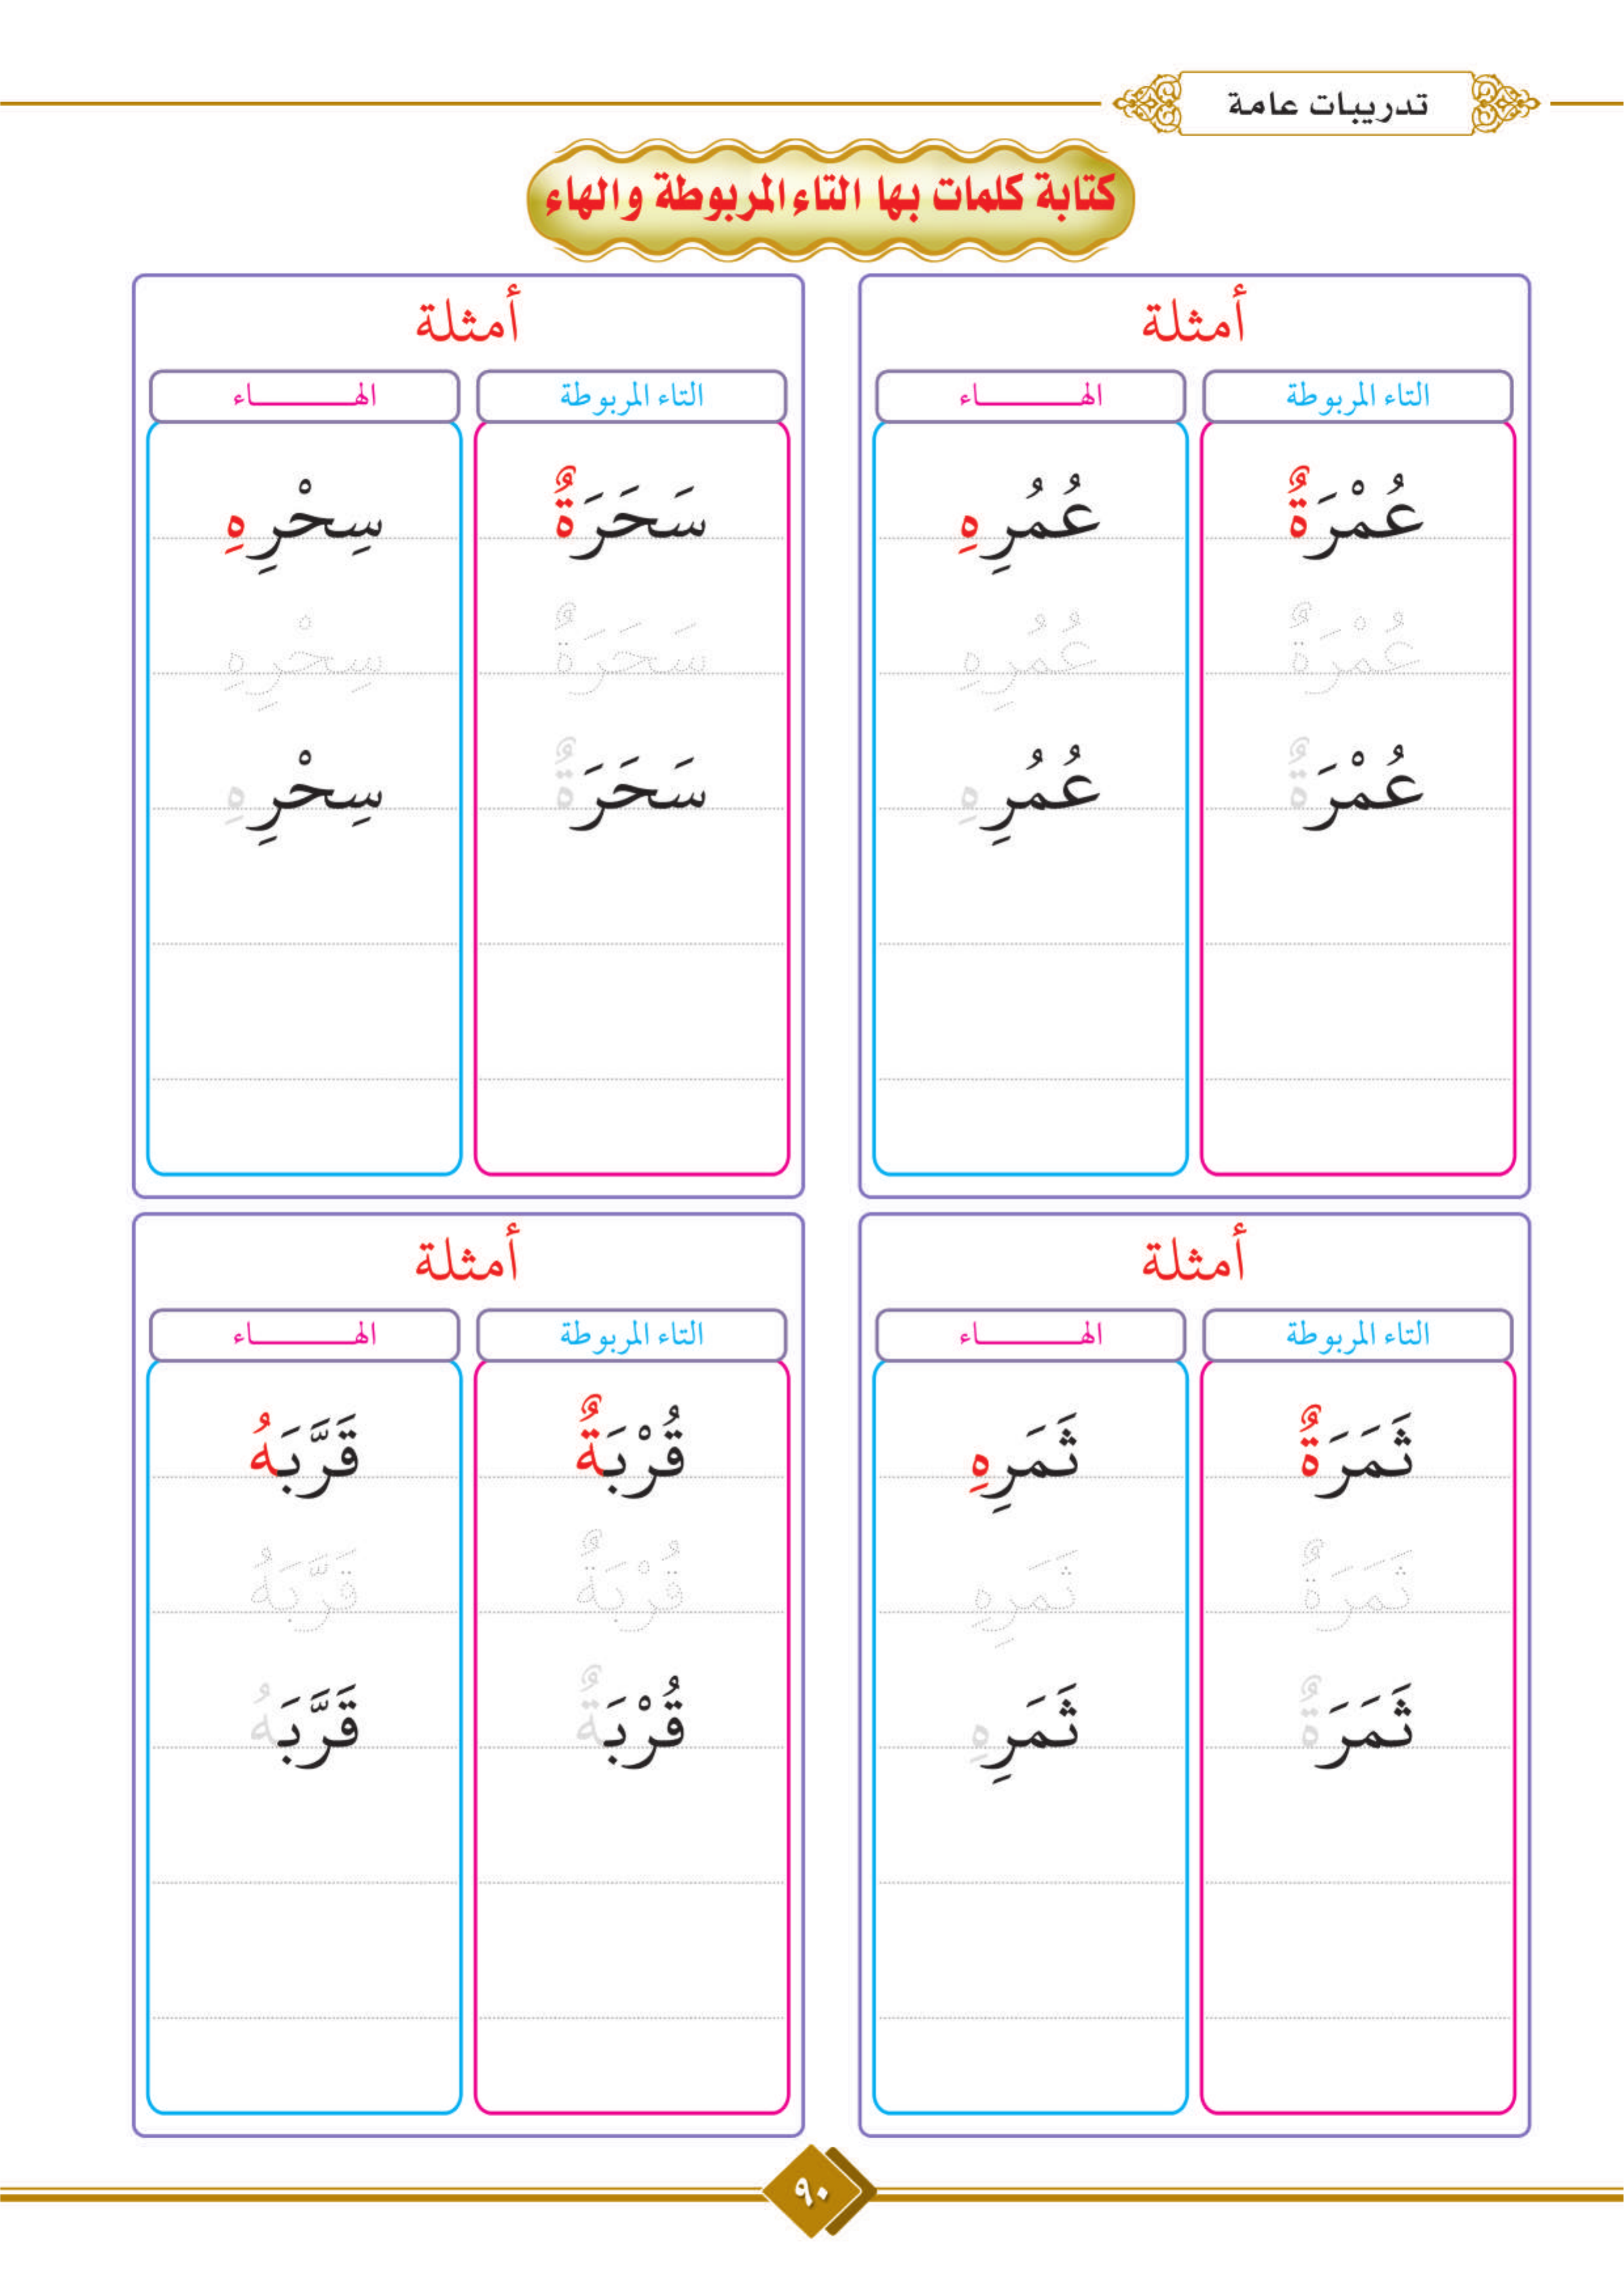 تدريبات عامة
كتابة كلمات بها التاء المربوطة والهاء
أمثلة
التاء المربوطة الهـــــــاء
عُمْرَةٌ عُمُرِهِ
عُمْرَةٌ عُمُرِهِ
عُمْرَةٌ عُمُرِهِ
أمثلة
التاء المربوطة الهـــــــاء
سَحَرَةٌ سِحْرِهِ
سَحَرَةٌ سِحْرِهِ
سَحَرَةٌ سِحْرِهِ
أمثلة
التاء المربوطة الهـــــــاء
ثَمَرَةٌ ثَمَرِهِ
ثَمَرَةٌ ثَمَرِهِ
ثَمَرَةٌ ثَمَرِهِ
أمثلة
التاء المربوطة الهـــــــاء
قُرْبَةٌ قَرَّبَهُ
قُرْبَةٌ قَرَّبَهُ
قُرْبَةٌ قَرَّبَهُ
٩٠